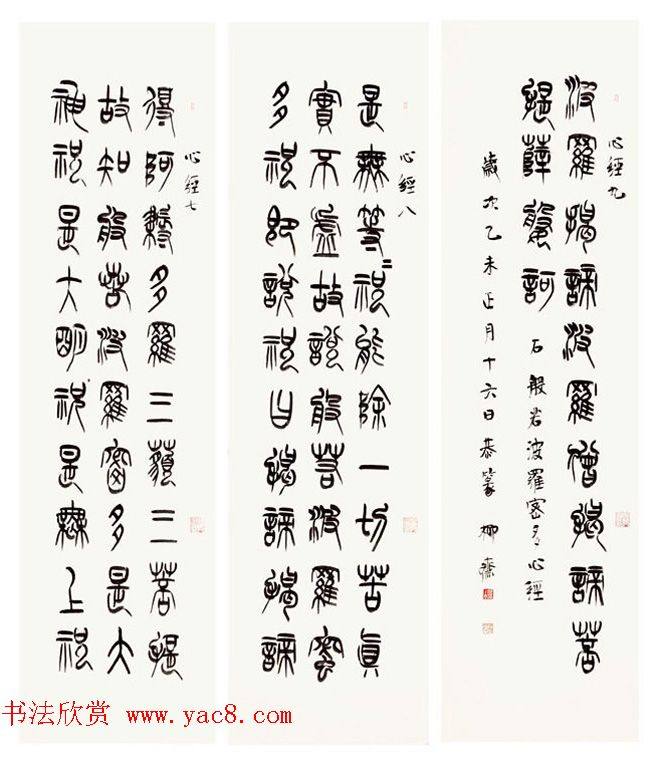 心經七
得阿耨多羅三藐三菩提
故知般若波羅蜜多是大
神咒是大明咒是無上咒
心經八
是無等〻咒能除一切苦真
實不虛故說般若波羅蜜
多咒即說咒曰揭諦揭諦
心經九
波羅揭諦波羅僧揭諦菩
提薩婆訶
右般若波羅密多心經
歲次乙未正月十六日恭篆 柳齋
书法欣赏 www.yac8.com